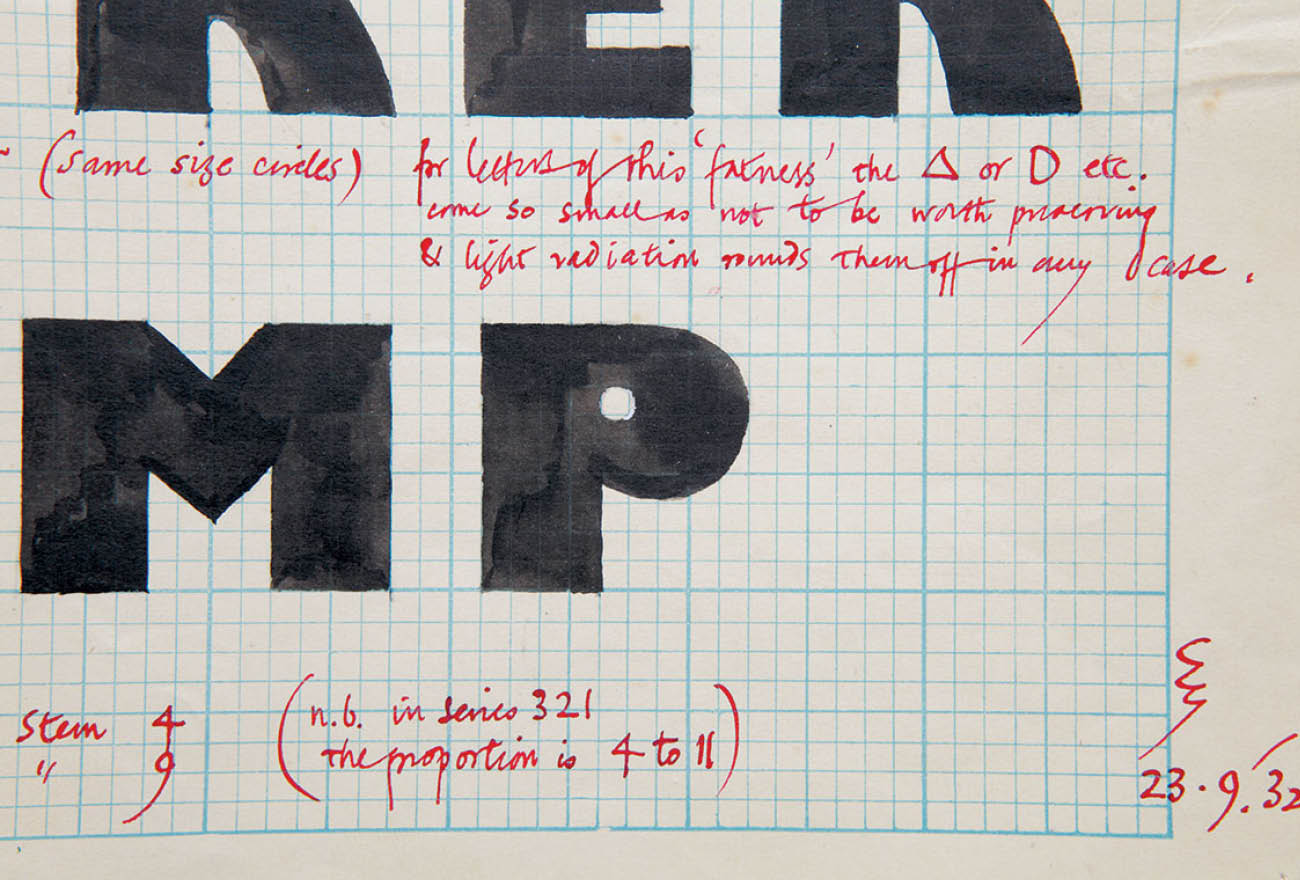 RER
(same size circles) for letters of this 'fatness' the Δ or D etc.
come so small as not to be worth preserving
& light radiation rounds them off in any case.
MP
Stem 4
" 9
(n.b. in series 321
the proportion is 4 to 11)
23.9.32